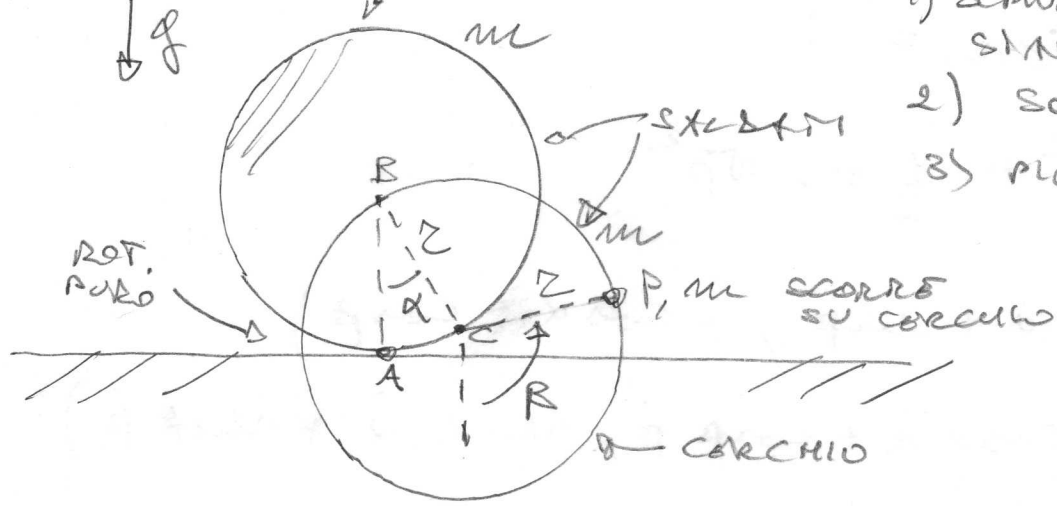 g
m
1)
SIN
2) SC
SALDATI
3)
B
m
ROT.
PURO
r
α
r
P, m SCORRE
SU CERCHIO
C
A
β
CERCHIO